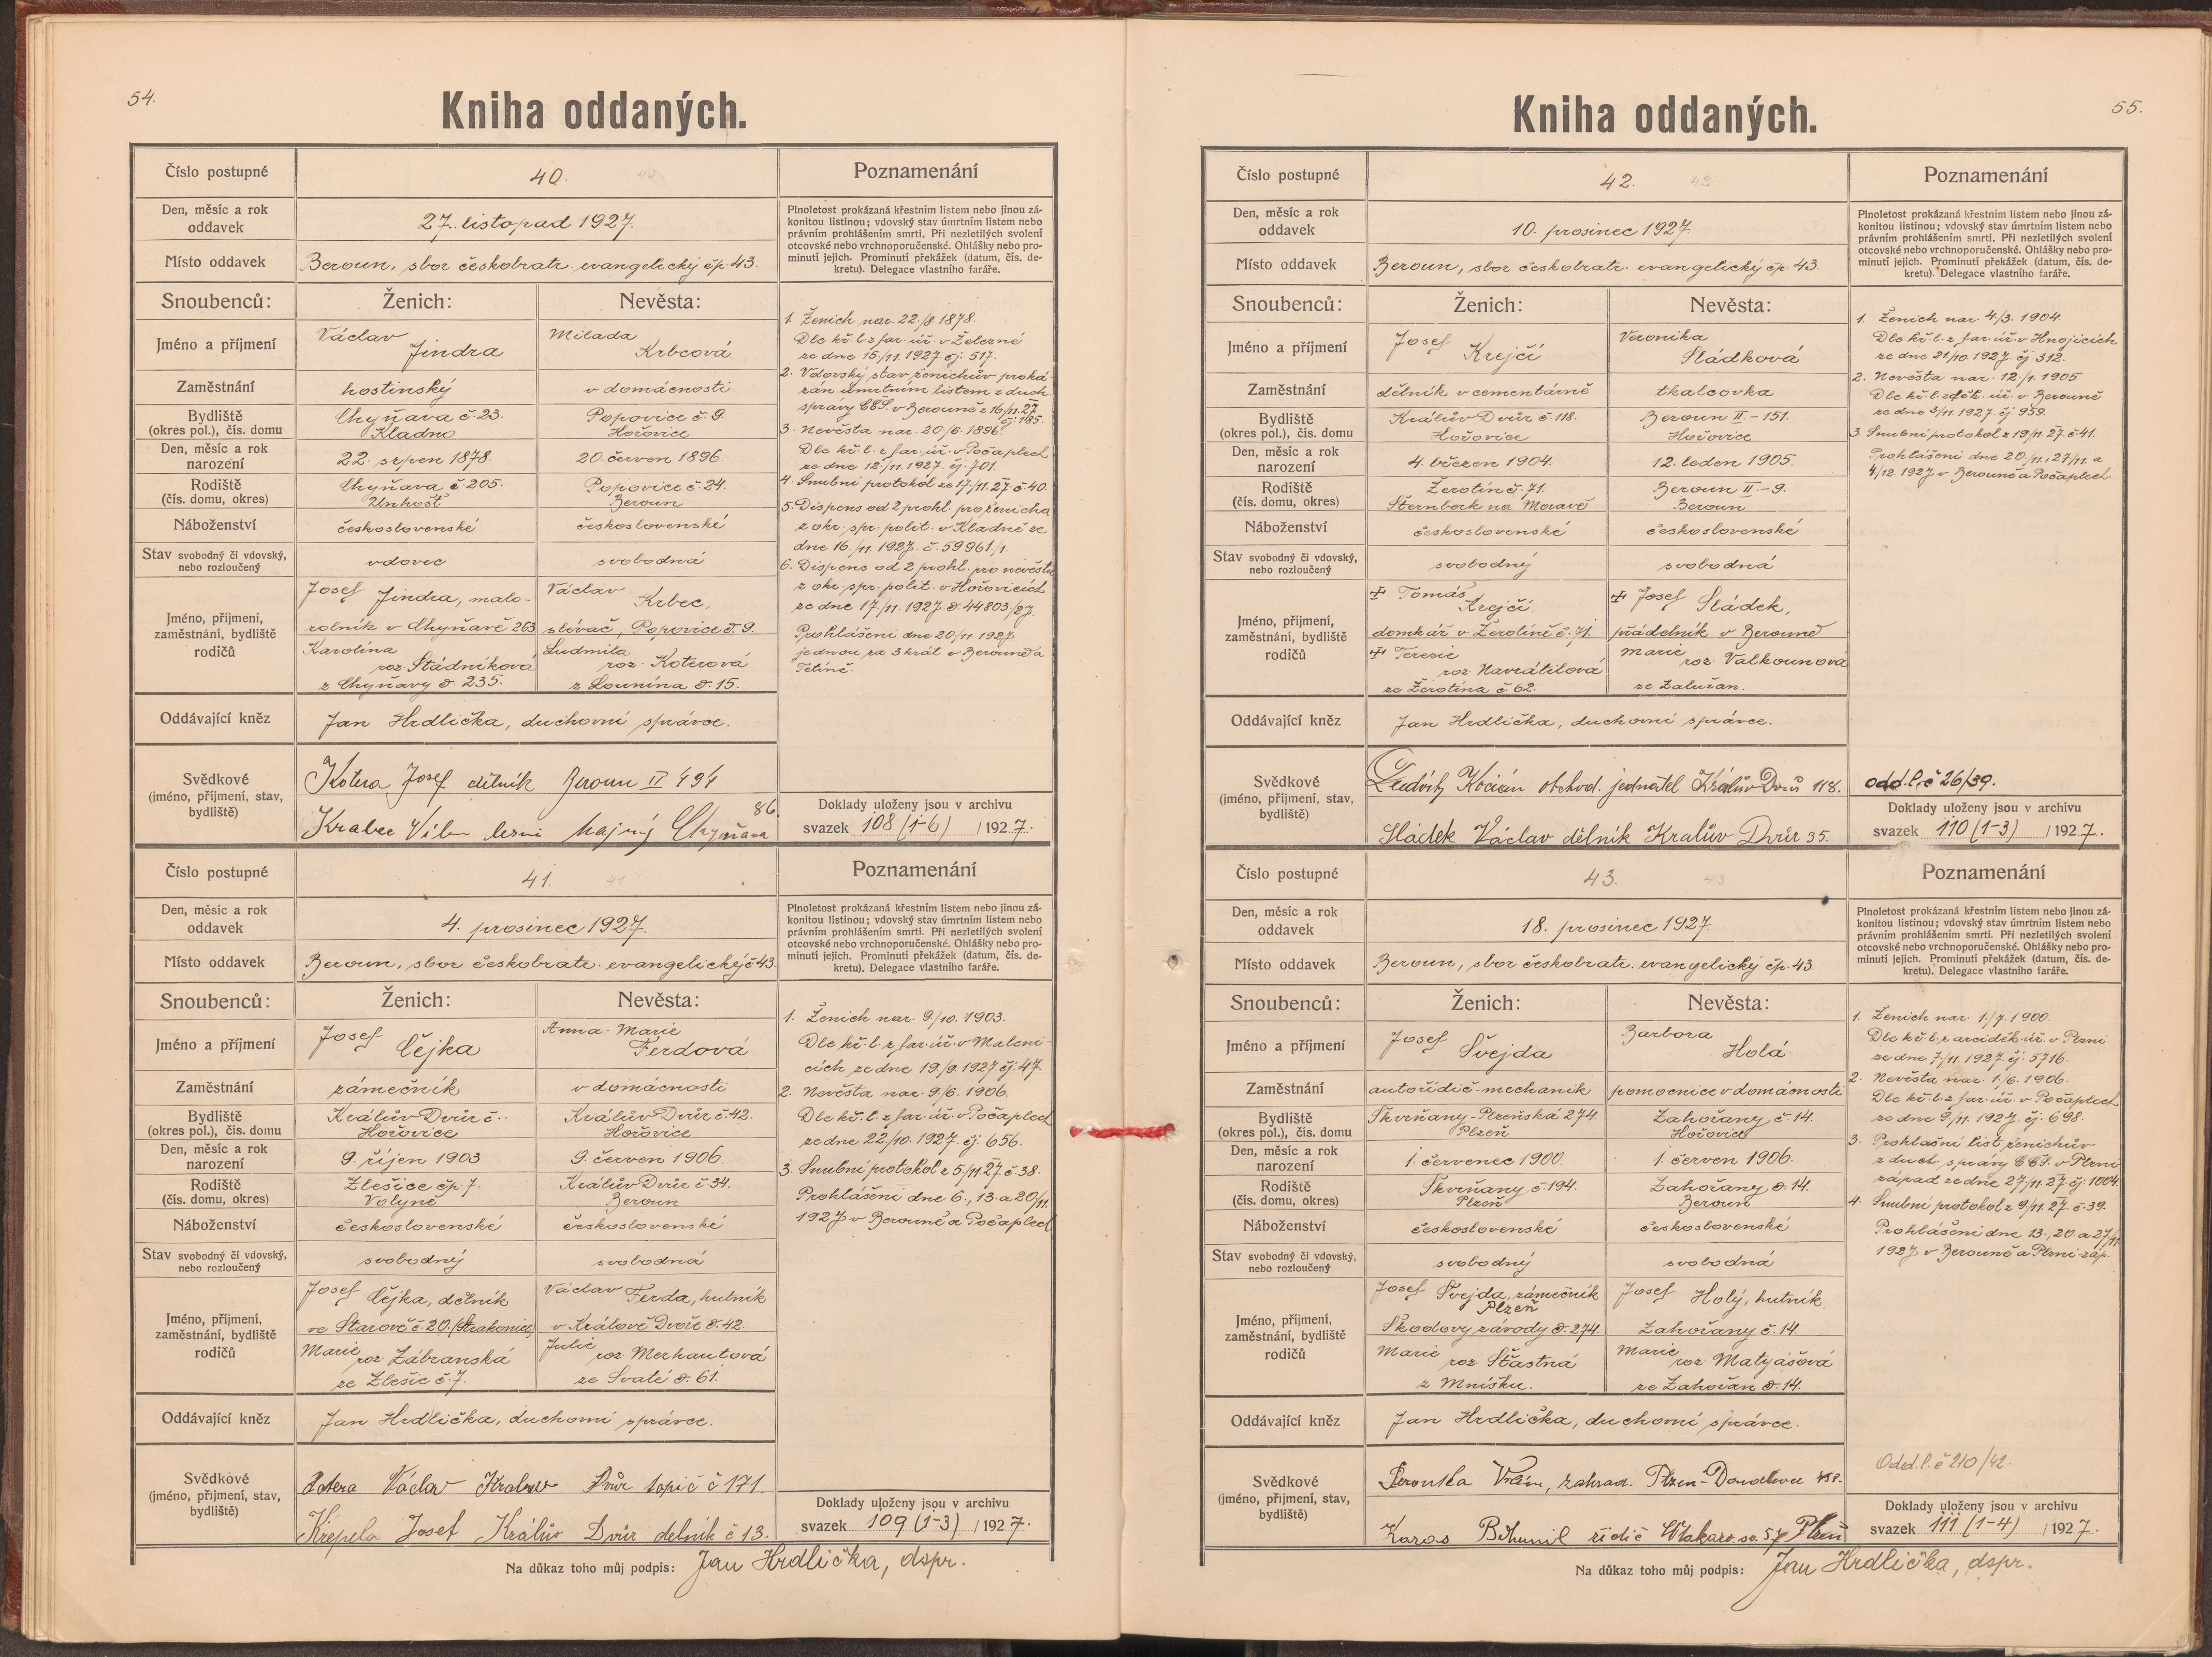 54.
Kniha oddaných.
Číslo postupné
40.
Poznamenání
Den, měsíc a rok
oddavek
27. listopad 1927.
Místo oddavek
Beroun, sbor českobratr. evangelický čp. 43.
Plnoletost prokázaná křestním listem nebo jinou zá-
konitou listinou; vdovský stav úmrtním listem nebo
právním prohlášením smrti. Při nezletilých svolení
otcovské nebo vrchnoporučenské. Ohlášky nebo pro-
minutí jejich. Prominutí překážek (datum, čís. de-
kretu). Delegace vlastního faráře.
Snoubenců:
Ženich:
Nevěsta:
Jméno a příjmení
Václav
Jindra
Milada
Krbcová
Zaměstnání
hostinský
v domácnosti
Bydliště
(okres pol.), čís. domu
Chyňava č. 23.
Kladno
Popovice č. 9.
Hořovice
Den, měsíc a rok
narození
22. srpen 1878.
20. červen 1896.
Rodiště
(čís. domu, okres)
Chyňava č. 205.
Unhošť
Popovice č. 24.
Beroun
Náboženství
československé
československé
Stav svobodný či vdovský,
nebo rozloučený
vdovec
svobodná
Jméno, příjmení,
zaměstnání, bydliště
rodičů
Josef Jindra, malo-
rolník v Chyňavě 263
Karolina
roz. Stádníková
z Chyňavy č. 235.
Václav
Krbec,
slévač, Popovice č. 9.
Ludmila
roz. Koterová
z Lounína č. 15.
1. Ženich nar. 22./8. 1878.
Dle kř. l. z far. úř. v Železné
ze dne 15/11. 1927 čj. 517.
2. Vdovský stav ženichův proká-
zán úmrtním listem z duch.
správy CČS. v Berouně z 16/11. 27
čj. 185.
3. Nevěsta nar. 20./6. 1896.
Dle kř. l. z far. úř. v Počaplech
ze dne 12./11. 1927. čj. 701.
4. Snubní protokol ze 17/11. 27. č. 40.
5. Dispens od 2 prohl. pro ženicha
z okr. spr. polit. v Kladně ze
dne 16./11. 1927. č. 59961/1.
6. Dispens od 2 prohl. pro nevěstu
z okr. spr. polit. v Hořovicích
ze dne 17/11. 1927 č. 44803/27
Prohlášeni dne 20/11 1927.
jednou za 3 krát v Berouně a
Tetíně.
Oddávající kněz
Jan Hrdlička, duchovní správce.
Svědkové
(jméno, příjmení, stav,
bydliště)
Kotera Josef dělník Beroun II 494
Krabec Vilm lesní hajný Chyňava 86.
Doklady uloženy jsou v archivu
svazek 108 (1-6) /1927.
Číslo postupné
41.
Poznamenání
Den, měsíc a rok
oddavek
4. prosinec 1927.
Místo oddavek
Beroun, sbor českobratr. evangelický č 43.
Plnoletost prokázaná křestním listem nebo jinou zá-
konitou listinou; vdovský stav úmrtním listem nebo
právním prohlášením smrti. Při nezletilých svolení
otcovské nebo vrchnoporučenské. Ohlášky nebo pro-
minutí jejich. Prominutí překážek (datum, čís. de-
kretu). Delegace vlastního faráře.
Snoubenců:
Ženich:
Nevěsta:
Jméno a příjmení
Josef
Čejka
Anna-Marie
Ferdová
Zaměstnání
zámečník
v domácnosti
Bydliště
(okres pol.), čís. domu
Králův Dvůr č..
Hořovice
Králův Dvůr č. 42.
Hořovice
Den, měsíc a rok
narození
9. říjen 1903
9. červen 1906.
Rodiště
(čís. domu, okres)
Zlešice čp. 7.
Volyně
Králův Dvůr č. 34.
Beroun
Náboženství
československé
československé
Stav svobodný či vdovský,
nebo rozloučený
svobodný
svobodná
Jméno, příjmení,
zaměstnání, bydliště
rodičů
Josef Čejka, dělník
ve Starově č. 20. (Strakonice)
Marie
roz. Zábranská
ze Zlešic č. 7.
Václav Ferda, hutník
v Králově Dvoře č. 42.
Julie
roz. Merhautová
ze Svaté č. 61.
1. Ženich nar. 9./10. 1903.
Dle kř. l. z far. úř. v Maleni-
cích ze dne 19/9. 1927. čj. 47
2. Nevěsta nar. 9/6. 1906.
Dle kř. l. z far. úř. v Počaplech
ze dne 22./10. 1927. čj. 656.
3. Snubní protokol z 5/11 27 č 38.
Prohlášeni dne 6., 13. a 20/11.
1927 v Berouně a Počaplech
Oddávající kněz
Jan Hrdlička, duchovní správce.
Svědkové
(jméno, příjmení, stav,
bydliště)
Václav Kraluv Dvůr topič č 171.
Křepela Josef Králův Dvůr delník č 13.
Doklady uloženy jsou v archivu
svazek 109 (1-3) /1927.
Na důkaz toho můj podpis: Jan Hrdlička, dspr.
55.
Kniha oddaných.
Číslo postupné
42.
Poznamenání
Den, měsíc a rok
oddavek
10. prosinec 1927.
Místo oddavek
Beroun, sbor českobratr. evangelický čp. 43.
Plnoletost prokázaná křestním listem nebo jinou zá-
konitou listinou; vdovský stav úmrtním listem nebo
právním prohlášením smrti. Při nezletilých svolení
otcovské nebo vrchnoporučenské. Ohlášky nebo pro-
minutí jejich. Prominutí překážek (datum, čís. de-
kretu). Delegace vlastního faráře.
Snoubenců:
Ženich:
Nevěsta:
Jméno a příjmení
Josef
Krejčí
Veronika
Sládková
Zaměstnání
dělník v cementárně
tkalcovka
Bydliště
(okres pol.), čís. domu
Králův Dvůr č. 118.
Hořovice
Beroun II. - 151.
Hořovice
Den, měsíc a rok
narození
4. březen 1904.
12. leden 1905.
Rodiště
(čís. domu, okres)
Žerotín č. 71.
Šternberk na Moravě
Beroun II. - 9.
Beroun
Náboženství
československé
československé
Stav svobodný či vdovský,
nebo rozloučený
svobodný
svobodná
Jméno, příjmení,
zaměstnání, bydliště
rodičů
Tomáš
Krejčí,
domkář v Žerotíně č. 71.
Terezie
roz Navrátilová
ze Žerotína č 62.
Josef Sládek,
přádelník v Berouně
Marie
roz. Valkounová
ze Zalužan.
1. Ženich nar. 4/3. 1904.
Dle kř. l. z far. úř. v Hnojicích
ze dne 21/10. 1927. čj 312.
2. Nevěsta nar. 12/1. 1905
Dle kř. l. z děk. úř. v Berouně
ze dne 3/11. 1927. čj. 959.
3. Snubní protokol z 19/11. 27. č 41.
Prohlášeni dne 20./11., 27/11. a
4/12. 1927 v Berouně a Počaplech.
Oddávající kněz
Jan Hrdlička, duchovní správce.
Svědkové
(jméno, příjmení, stav,
bydliště)
Ludvík Kocián obchod. jednatel Králův Dvůr 118.
Sládek Václav dělník Kralův Dvůr 35.
odd. l. č 26/39.
Doklady uloženy jsou v archivu
svazek 110 (1-3) /1927.
Číslo postupné
43.
Poznamenání
Den, měsíc a rok
oddavek
18. prosinec 1927.
Místo oddavek
Beroun, sbor českobratr. evangelický čp. 43.
Plnoletost prokázaná křestním listem nebo jinou zá-
konitou listinou; vdovský stav úmrtním listem nebo
právním prohlášením smrti. Při nezletilých svolení
otcovské nebo vrchnoporučenské. Ohlášky nebo pro-
minutí jejich. Prominutí překážek (datum, čís. de-
kretu). Delegace vlastního faráře.
Snoubenců:
Ženich:
Nevěsta:
Jméno a příjmení
Josef
Švejda
Barbora
Holá
Zaměstnání
autořidič-mechanik
pomocnice v domácnosti
Bydliště
(okres pol.), čís. domu
Škvrňany-Plzeňská 274
Plzeň
Zahořany č. 14.
Hořovice
Den, měsíc a rok
narození
1. červenec 1900.
1. červen 1906.
Rodiště
(čís. domu, okres)
Škvrňany č 194.
Plzeň
Zahořany č. 14.
Beroun
Náboženství
československé
československé
Stav svobodný či vdovský,
nebo rozloučený
svobodný
svobodná
Jméno, příjmení,
zaměstnání, bydliště
rodičů
Josef Švejda, zámečník
Plzeň
Škodovy závody č. 274.
Marie
roz. Šťastná
z Mníšku.
Josef Holý, hutník,
Zahořany č. 14.
Marie
roz. Matyášová
ze Zahořan č. 14.
1. Ženich nar. 1./7. 1900.
Dle kř. l. z arciděk. úř. v Plzni
ze dne 7/11. 1927. čj. 5716.
2. Nevěsta nar. 1./6. 1906.
Dle kř. l. z far. úř. v Počaplech
ze dne 9/11. 1927. čj. 698.
3. Prohlašní list ženichův
z duch. správy CČS. v Plzni
západ ze dne 27/11. 27 čj. 1004.
4. Snubní protokol z 9/11. 27. č. 39.
Prohlášeni dne 13., 20. a 27/11
1927 v Berouně a Plzni-záp.
Oddávající kněz
Jan Hrdlička, duchovní správce.
Svědkové
(jméno, příjmení, stav,
bydliště)
Vilém, zahrad. Plzen-Doudlevce
Karas Bohumil řidič 57 Plzeň
Odd. l. č 210/42.
Doklady uloženy jsou v archivu
svazek 111 (1-4) /1927.
Na důkaz toho můj podpis: Jan Hrdlička, dspr.